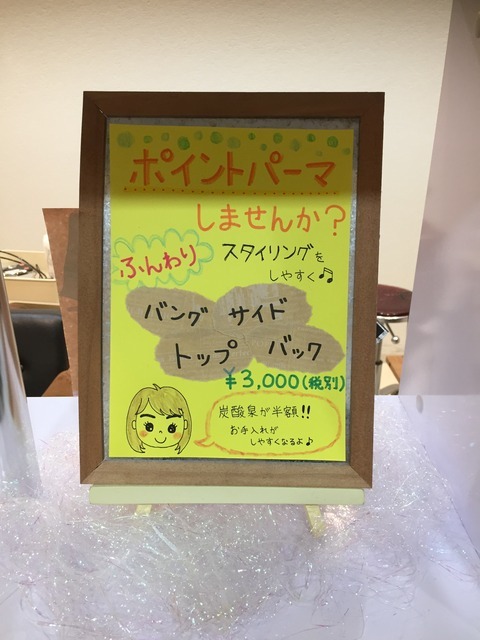 ポイントパーマ
しませんか?
ふんわり スタイリングを
しやすく♫
バング サイド
トップ バック
¥3,000(税別)
炭酸泉が半額!!
お手入れが
しやすくなるよ♪